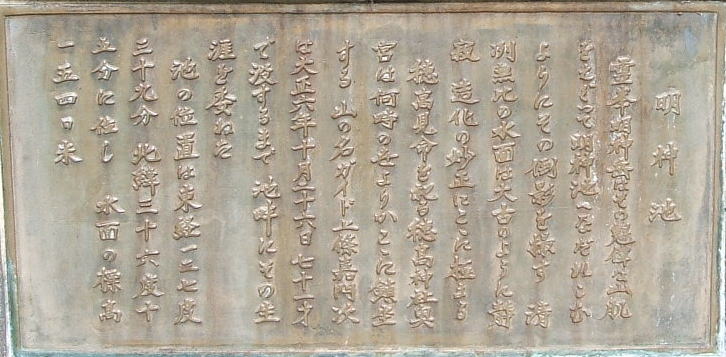 明神池
霊峯 明神岳はその魁偉な山肌
をそして 明神池へとそれこむ
ようにその倒影を宿す 清
冽無比の水面は太古のように静
寂 造化の妙正にここに極まる
穂高見命を祀る穂高神社奥
宮は何時の世よりかここに鎮座
する 山の名ガイド上條嘉門次
は大正六年十月二十六日 七十一才
で没するまで 池畔にその生
涯を委ねた
池の位置は東経一三七度
三十九分 北緯三十六度十
五分に位し 水面の標高
一五四〇米